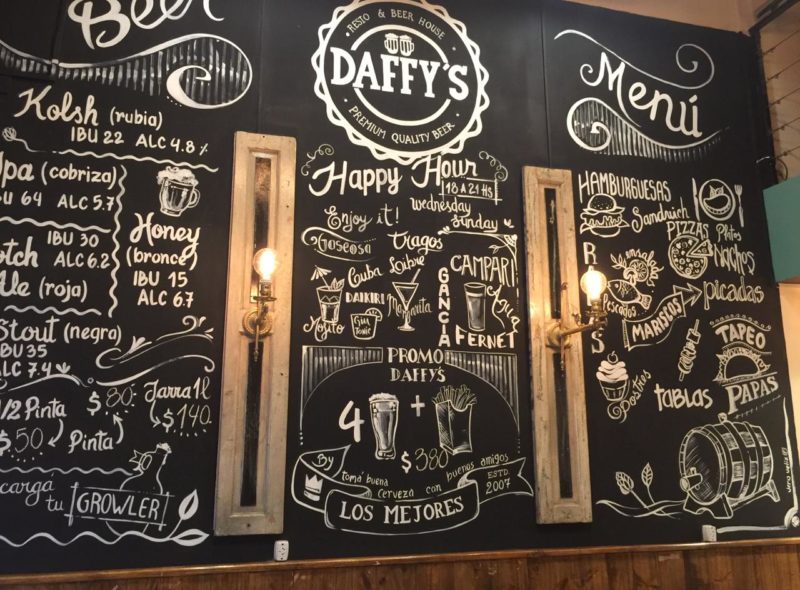 Beer
Kolsh (rubia)
IBU 22 ALC 4.8 %
(cobriza)
64 ALC 5.7
IBU 30
ALC 6.2
(roja)
Honey
(bronce)
IBU 15
ALC 6.7
Stout (negra)
IBU 35
ALC 7.4
1/2 Pinta
$50
$80
Pinta
Jarra 1l
$140
tu
GROWLER
RESTO & BEER HOUSE
DAFFY'S
PREMIUM QUALITY BEER
Happy Hour
18 A 21 HS
Wednesday
Sunday
Enjoy it!
Gaseosa
Tragos
Cuba Libre
DAIKIRI
Margarita
Mojito
Gin
Tonic
CAMPARI
GANCIA
Agua
FERNET
PROMO
DAFFY'S
4 +
$380
By tomá buena cerveza con buenos amigos
ESTD.
2007
LOS MEJORES
Menú
HAMBURGUESAS
Sandwich
PIZZAS
Platos
Nachos
Ensaladas
Pescados
picadas
MARISCOS
TAPEO
Postres
tablas
PAPAS